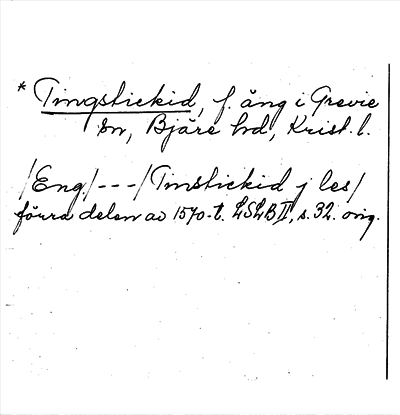 * Tingstickid, f. äng i Grevie
sn, Bjäre hd, Krist. l.
/Eng/---/Tinstickid j les/
förra delen av 1570-t. LSLB II, s. 32. orig.